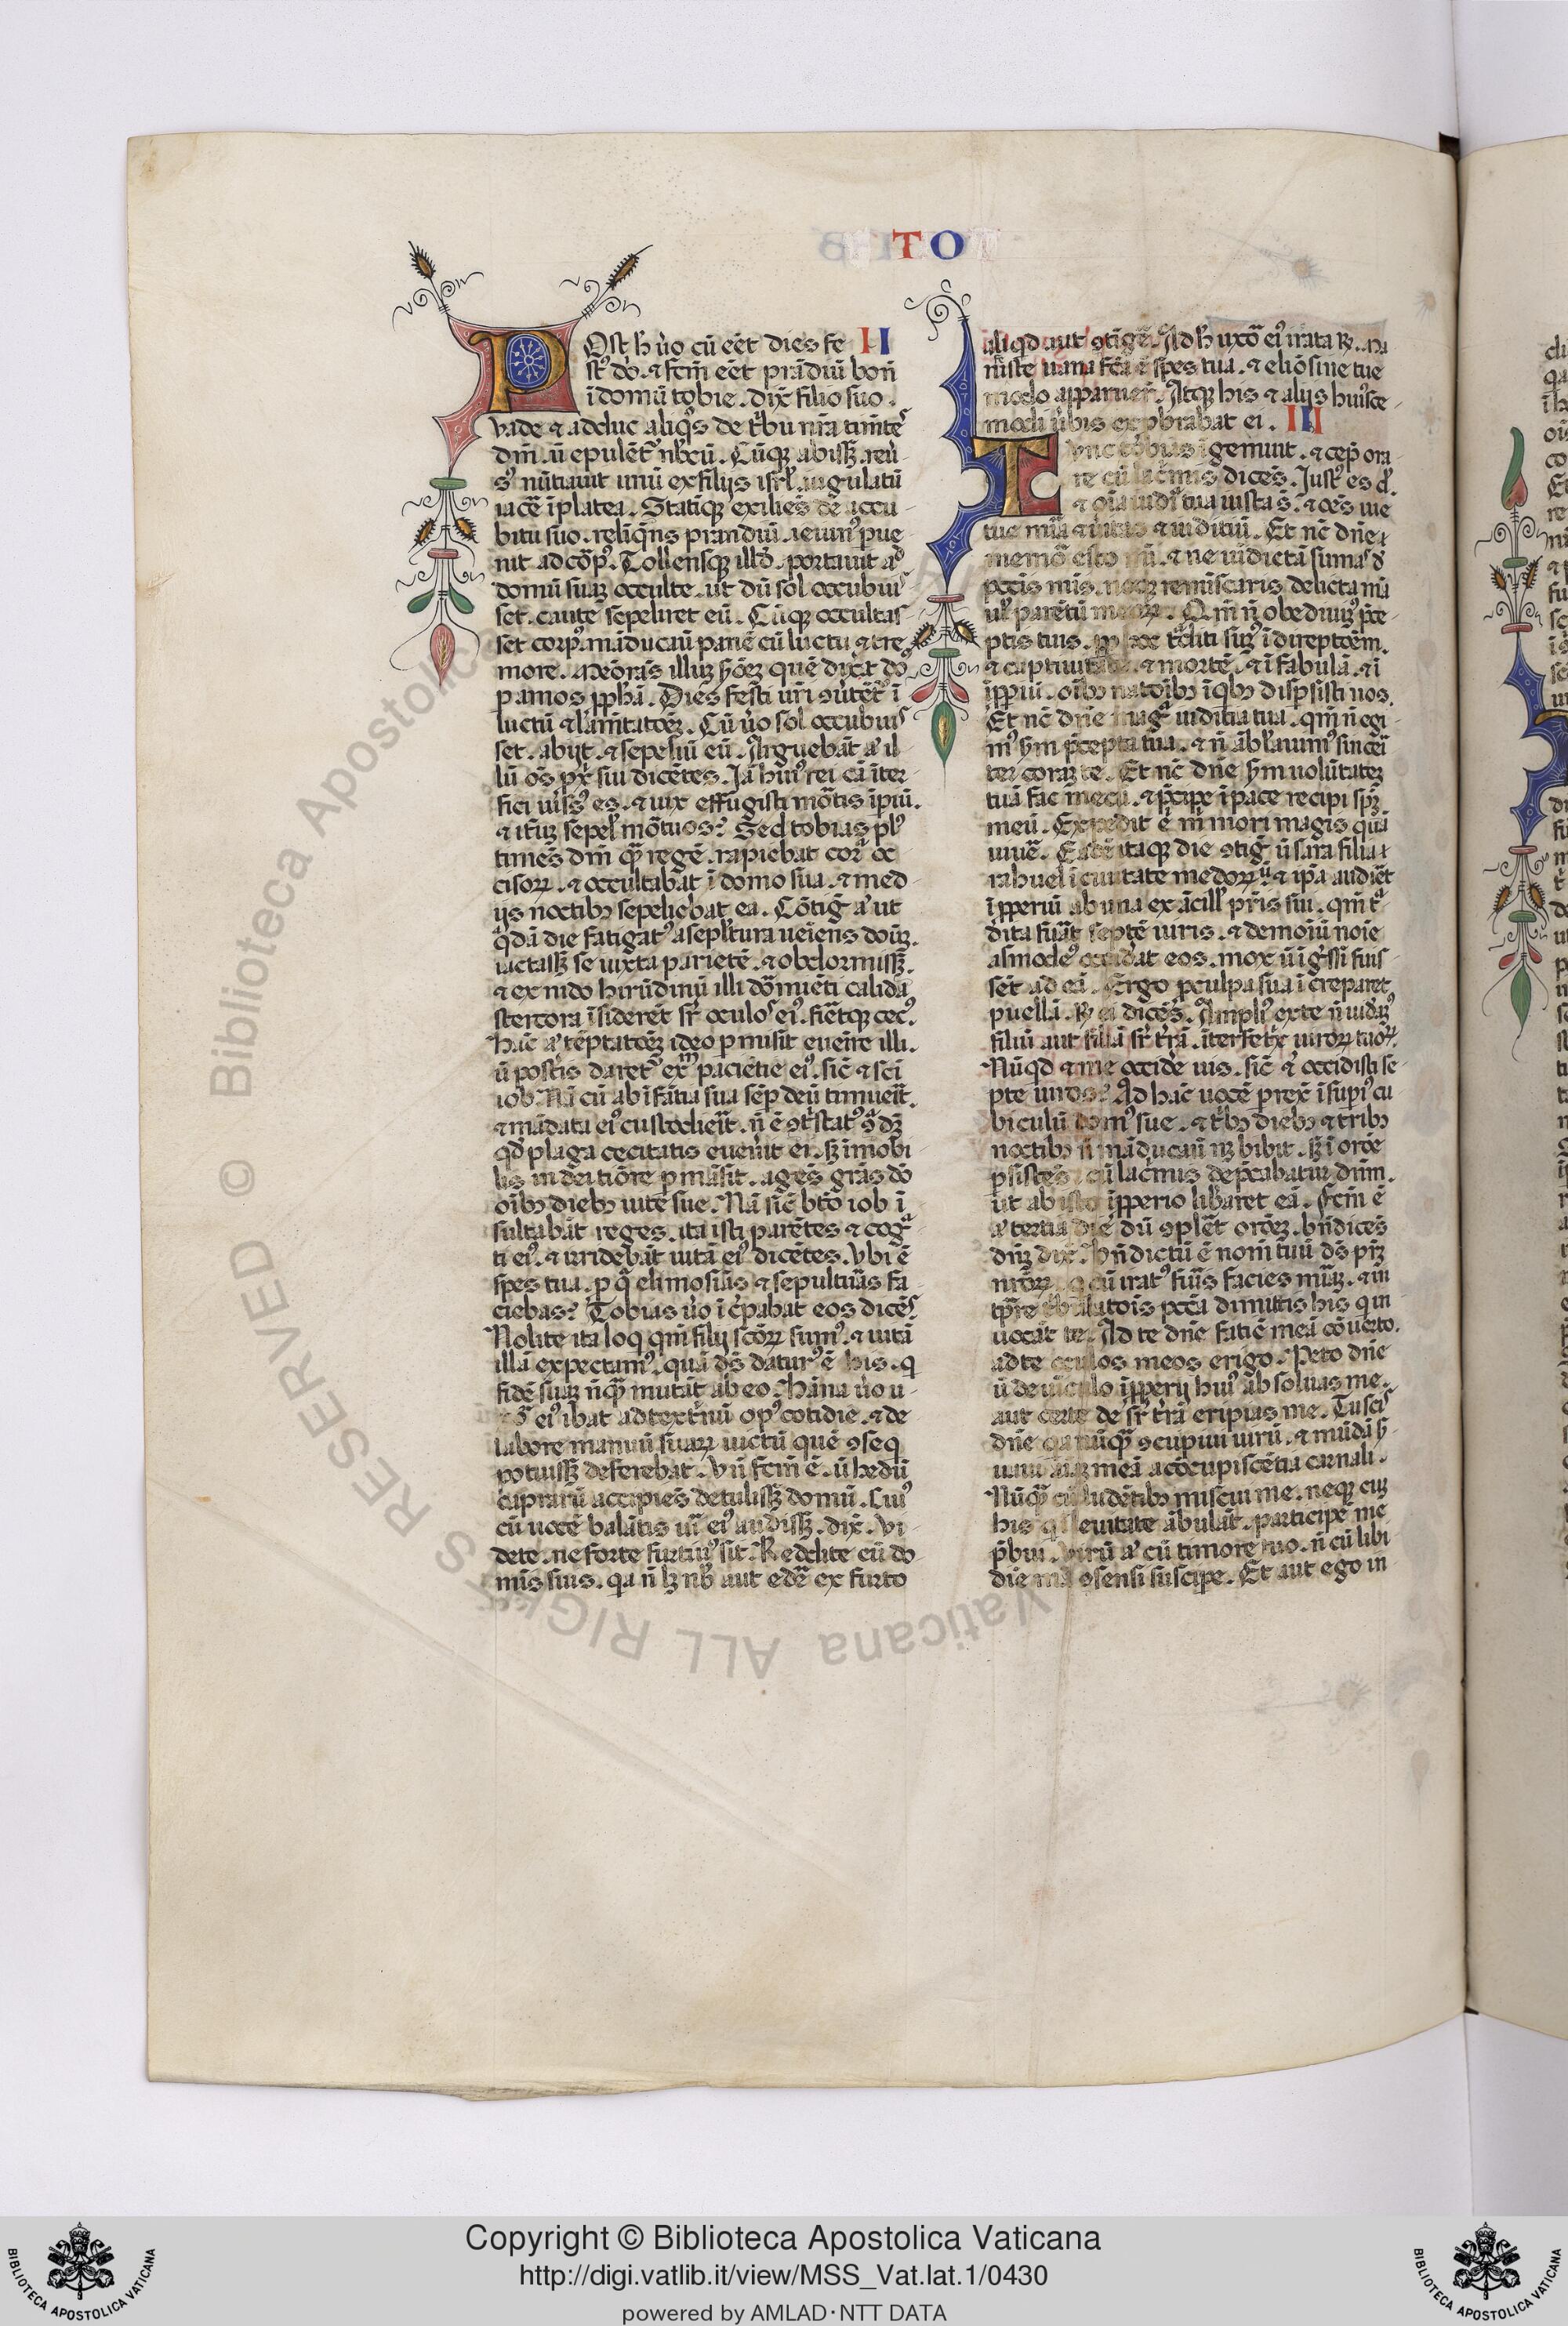 TO
POSt h̄ u̾o cū eēt dies fe II
st᷒ do᷒. ⁊ fc̄m eēt prādiū bon̄
ī domū tobie. dix̄ filio suo.
Vade ⁊ adduc aliq̾s de tͥbu nr̄a tim̄te᷒
dm̄. ū epulēt᷒ nb̾cū. Cūqꝫ abiissꝫ. reu̾-
s᷒ nūtiauit unū ex filijs isrl̾ iugulatū
iacē̄ ī platea. Statīqꝫ exilie᷒s dē accu-
bitu suo. reliq̄ns prandiū. ieiun᷒ p̱ue-
nit ad cōp᷒. Tollensqꝫ illd̾. portauit a᷒
domū suaꝫ occulte. ut dū sol occubui᷒
set. caute sepeliret eū. Cūqꝫ occultas᷒
set corp᷒. māducaū panē cū luctu ⁊ tre
more. Meōrās illuꝫ
p amos pp̄hā. Dies festi ur̄i ꝯu̾tēt᷒ ī
luctū ⁊ lam̄tatōeꝫ. Cū u̾o sol occubui᷒
set. abijt. ⁊ sepeliū eū. Arguebāt a᷒ il-
lū oēs px̄ sui dicētes. Iā hui᷒ rei cā īter-
fici uis᷒ es. ⁊ uix effugisti mōtis īpiū.
⁊ itͥuꝫ sepel̾ mōtuos? Sed tobias pl᷒
timēs dm̄ qꝫ regē. rapiebat cor᷒ oc
cisoꝝ. ⁊ occultabāt ī domo sua. ⁊ med-
ijs noctibꝫ sepeliebat ea. Cōtig̾ a᷒ ut
qͣdā die fatigat᷒ a sepl̾tura ueiens doūꝫ.
iactassꝫ se iuxta parietē. ⁊ obdormissꝫ.
⁊ ex nido hirūdinū illi dōmiēti calida
stercora īsiderēt sr̾ oculo᷒ ei᷒. fiētqꝫ cec᷒.
Hāc a᷒ tēptatōeꝫ ideo p̱misit eueīre illi.
ū post̾is daret᷒ exm̄ pacientie ei᷒. sic̄ ⁊ scī
iob. Nā cū ab īfātia sua sēp̱ deū timueīt.
⁊ mādata ei᷒ custodieīt. n̄ ē ꝯtͥstat᷒
qd̾ plaga cecitatis euen̾it ei. sꝫ īmobi
lis in dei tiōre p̱māsit. agēs grās dō
oībꝫ diebꝫ uite sue. Nā sic̄ bt̄o iob ī
sultabāt reges. ita isti parētes ⁊ cogͣ
ti ei᷒. ⁊ irridebāt uitā ei᷒ dicētes. Vbi ē
spes tua. p̱ qͣ elimosiās ⁊ sepultuās fa
ciebas? Tobias u̾o īc̾pabat eos dicē᷒.
Nolite ita loq qm̄ filij scōꝝ sum᷒. ⁊ uitā
illā expectam᷒. quā dē᷒ datur᷒ ē his. q
fidē suaꝫ n̄qꝫ mutāt ab eo. Hāna u̾o u-
ei᷒ ibat ad textͥnū op᷒ cotidie. ⁊ de
labore manuū suaꝝ uictū quē ꝯseq
potuissꝫ deferebat. Vn̄ fcm̄ ē. ū hedū
caprarū accipiēs detulissꝫ domū. Cui᷒
cū uocē balātis uir̄ ei᷒ audissꝫ. dix̄. Vi-
dete. ne forte furtiu᷒ sit. Reddite eū do-
mīs suis. qa n̄ lꝫ nb̾ aut edē̄ ex furto
aliqd. aut ꝯtigē̄. Ad h̄ uxō ei᷒ irata Rͦ. Ma
niste uana fc̄a ē spes tua. ⁊ eliōsine tue
modo apparuer̄. Atqꝫ his ⁊ alijs hui᷒ce-
modi u̾bis exp̱brabat ei. III
Tunc tobias īgemuit. ⁊ cep̱ ora-
re cū lac̾mis dicēs. Iust᷒ es d᷒.
⁊ oīa iudi᷒ tua iusta s̄. ⁊ oēs uie
tue mīa ⁊ u̾itas ⁊ iuditiū. Et nc̄ dn̄e
memō esto mī. ⁊ ne uīdictā suma᷒ d̾
pccīs mīs. neqꝫ remīscaris delicta mā
ul̾ parētū meoꝝ. Qm̄ n̄ obediuiꝫ p̄ce-
ptis tuis. ꝓp̱ qd t̾diti suꝫ ī direptōem.
⁊ captiuitatē. ⁊ mortē. ⁊ ī fabulā. ⁊ ī
īpp̱iū. oībꝫ natōibꝫ īqbꝫ disp̱sisti nos.
Et nc̄ dn̄e magͣ iuditia tua. qm̄ n̄ egi-
m᷒ s̄m p̄cepta tua. ⁊ n̄ ābl̾auim᷒ sīncēi
ter coraꝫ te. Et nc̄ dn̄e s̄m uolūtateꝫ
tuā fac mecū. ⁊ p̄cipe ī pace recipi sp̄ꝫ
meū. Expedit ē m̄ mori magis quā
uiuē̄. Eadē itaqꝫ die ꝯtig̾ ū sara filia
rahuel ī ciuitate medoꝝ. ⁊ ip̄a audiēt
īpp̱erū ab una ex ācill̾ p̄ris sui. qm̄ tͣ
dita fūat septē uiris. ⁊ demoiū noīe
asmode᷒ occidāt eos. mox ū īgͤssi fuis-
sēt ad eā. Ergo p̱ culpa sua īcreparet
puellā. Rͦ ei dicēs. Ampli᷒ ex te n̄ uidꝫ᷒
filiū aut filiā sr̾ tr̄rā. īterfetͥx uiroꝝ tuōꝝ.
Nūqd ⁊ me occidē̄ uis. sic̄ ⁊ occidisti se-
pte uiros? Ad hāc uocē prex̄ ī sup̱i᷒ cu
biculū dom᷒ sue. ⁊ tͥbꝫ diebꝫ ⁊ tribꝫ
noctibꝫ n̄ māducaū nꝫ bibit. sꝫ ī orōe
p̱sistēs cū lac̾mis dep̄cabatur dnm̄.
ut ab isto īpp̱erio lib̾aret eā. Fcm̄ ē
a᷒ tertia die dū ꝯplēt orōeꝫ. bn̄dicēs
dn̄ꝫ dix̄. Bn̄dictū ē nom̄ tuū dē᷒ pr̄ꝫ
nrōꝝ. q cū irat᷒ fu̾is facies mīaꝫ. ⁊ in
tp̄re tͥbulatōis pccā dimittis his q in
uocāt te. Ad te dn̄e fatiē meā cōu̾to.
ad te oculos meos erigo. Peto dn̄e
ū de uīculo īpp̱erij hui᷒ absoluas me.
aut certe de sr̾ tr̄rā eripias me. Tu sci᷒
dn̄e qa nūqꝫ ꝯcupiui uirū. ⁊ mūdā
aīaꝫ meā a cōcupiscētia carnali.
Nūqꝫ cū ludētibꝫ miscui me. neqꝫ cuꝫ
his q ī leuitate ābulāt. participē me
p̄bui. Virū a᷒ cū timore tuo. n̄ cū libi
die mā ꝯsensi suscipe. Et aut ego in
© Biblioteca Apostolica Vaticana ALL RIGHTS RESERVED
Copyright © Biblioteca Apostolica Vaticana
http://digi.vatlib.it/view/MSS_Vat.lat.1/0430
powered by AMLAD·NTT DATA
BIBLIOTECA APOSTOLICA VATICANA
BIBLIOTECA APOSTOLICA VATICANA